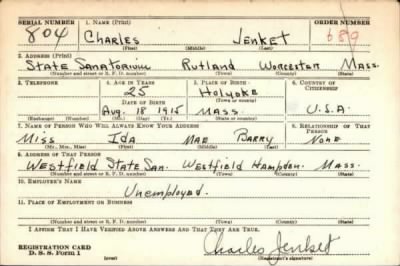 SERIAL NUMBER 1. NAME (Print) ORDER NUMBER
804 CHARLES JENKET 689
(First) (Middle) (Last)
2. ADDRESS (Print)
STATE SANATORIUM RUTLAND WORCESTER MASS.
(Number and street or R. F. D. number) (Town) (County) (State)
3. TELEPHONE 4. AGE IN YEARS 5. PLACE OF BIRTH 6. COUNTRY OF CITIZENSHIP
25 HOLYOKE
DATE OF BIRTH (Town or county)
AUG. 18 1915 MASS. U.S.A.
(Exchange) (Number) (Mo.) (Day) (Yr.) (State or country)
7. NAME OF PERSON WHO WILL ALWAYS KNOW YOUR ADDRESS 8. RELATIONSHIP OF THAT PERSON
MISS IDA MAE BARRY NONE
(Mr., Mrs., Miss) (First) (Middle) (Last)
9. ADDRESS OF THAT PERSON
WESTFIELD STATE SAN. WESTFIELD HAMPDEN MASS.
(Number and street or R. F. D. number) (Town) (County) (State)
10. EMPLOYER'S NAME
Unemployed.
11. PLACE OF EMPLOYMENT OR BUSINESS
(Number and street or R. F. D. number) (Town) (County) (State)
I AFFIRM THAT I HAVE VERIFIED ABOVE ANSWERS AND THAT THEY ARE TRUE.
REGISTRATION CARD
D. S. S. Form 1 (over) Charles Jenket
(Registrant's signature)